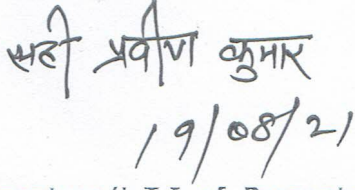 सही प्रवीण कुमार
19/08/21